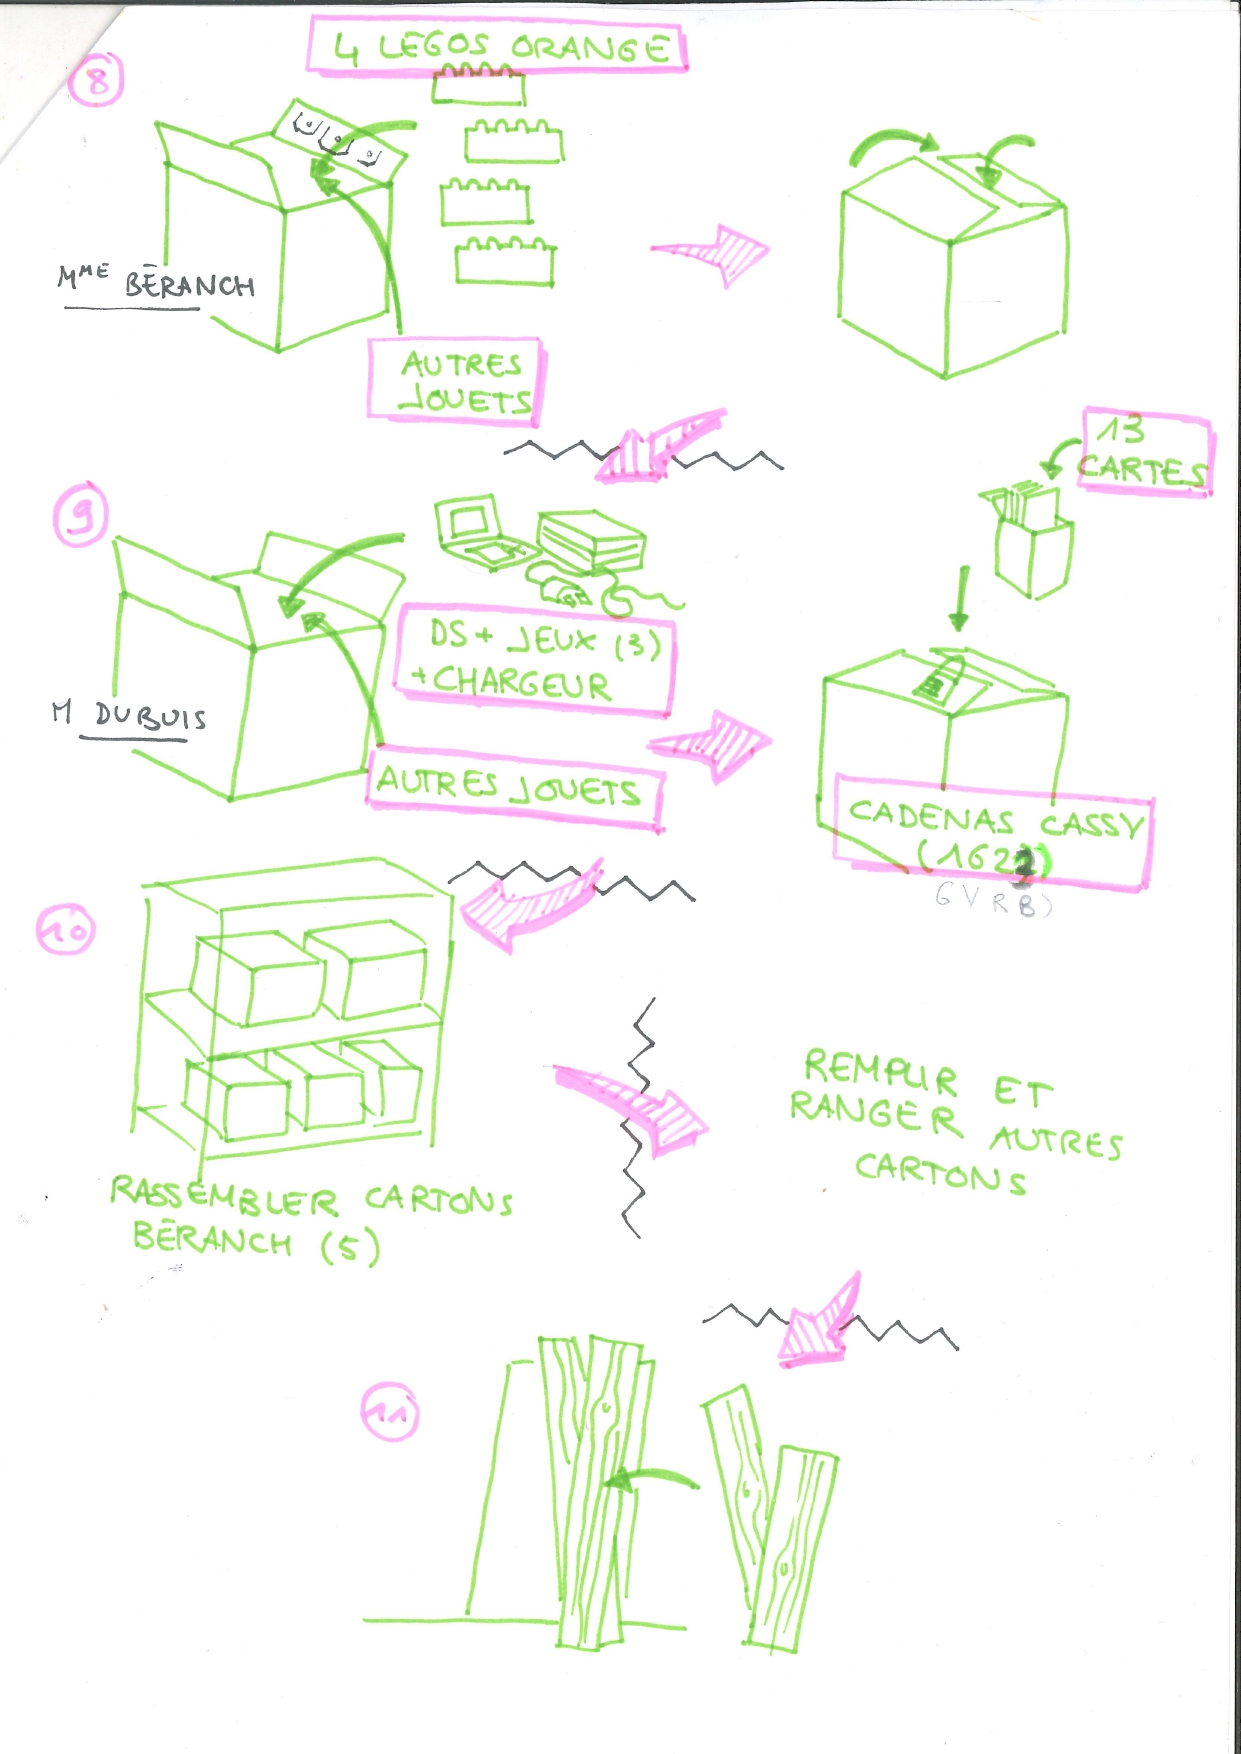 8
4 LEGOS ORANGE
MME BÉRANCH
AUTRES
JOUETS
13
CARTES
9
DS + JEUX (3)
+ CHARGEUR
M DUBUIS
AUTRES JOUETS
CADENAS CASSY
(1622)
GVRB)
10
RASSEMBLER CARTONS
BÉRANCH (5)
REMPLIR ET
RANGER AUTRES
CARTONS
11